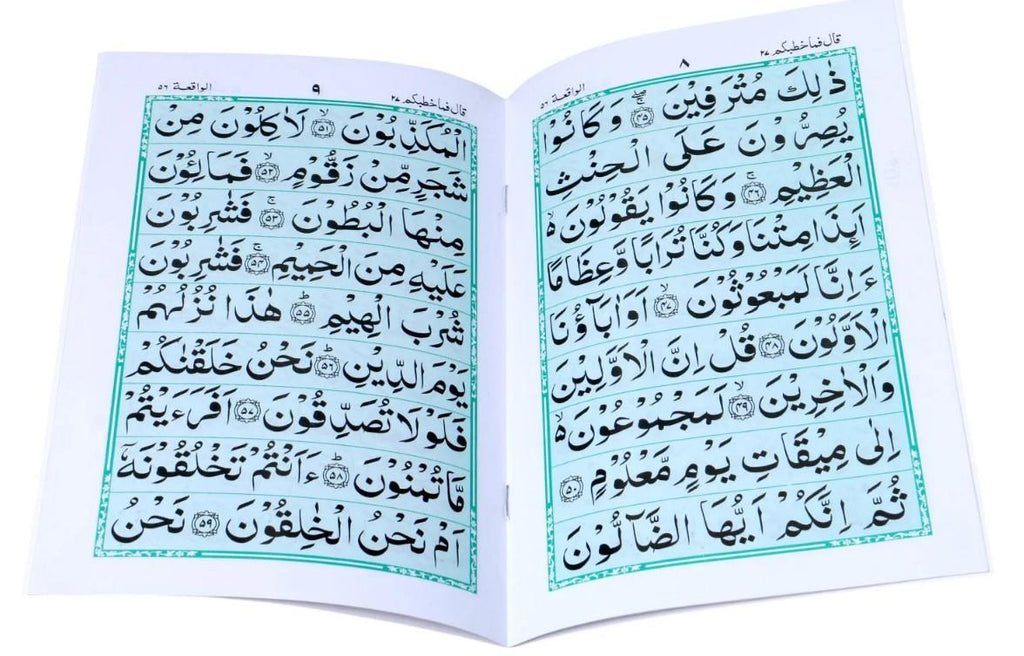 قال فما خطبكم ٢٧
٨
الواقعة ٥٦
ذٰلِكَ مُتْرَفِيْنَ ۝٤٥ۚۖ وَكَانُوْا
يُصِرُّوْنَ عَلَى الْحِنْثِ
الْعَظِيْمِ ۝٤٦ۚ وَكَانُوْا يَقُوْلُوْنَ ەۙ
اَىِٕذَا مِتْنَا وَكُنَّا تُرَابًا وَّعِظَامًا
ءَاِنَّا لَمَبْعُوْثُوْنَ ۝٤٧ۙ اَوَاٰبَآؤُنَا
الْاَوَّلُوْنَ ۝٤٨ قُلْ اِنَّ الْاَوَّلِيْنَ
وَالْاٰخِرِيْنَ ۝٤٩ۙ لَمَجْمُوْعُوْنَ ەۙ
اِلٰى مِيْقَاتِ يَوْمٍ مَّعْلُوْمٍ ۝٥٠
ثُمَّ اِنَّكُمْ اَيُّهَا الضَّآلُّوْنَ
قال فما خطبكم ٢٧
٩
الواقعة ٥٦
الْمُكَذِّبُوْنَ ۝٥١ۙ لَاٰكِلُوْنَ مِنْ
شَجَرٍ مِّنْ زَقُّوْمٍ ۝٥٢ۙ فَمَالِـُٔوْنَ
مِنْهَا الْبُطُوْنَ ۝٥٣ۚ فَشٰرِبُوْنَ
عَلَيْهِ مِنَ الْحَمِيْمِ ۝٥٤ۚ فَشٰرِبُوْنَ
شُرْبَ الْهِيْمِ ۝٥٥ؕ هٰذَا نُزُلُهُمْ
يَوْمَ الدِّيْنِ ۝٥٦ؕ نَحْنُ خَلَقْنٰكُمْ
فَلَوْلَا تُصَدِّقُوْنَ ۝٥٧ اَفَرَءَيْتُمْ
مَّا تُمْنُوْنَ ۝٥٨ؕ ءَاَنْتُمْ تَخْلُقُوْنَهٗۤ
اَمْ نَحْنُ الْخٰلِقُوْنَ ۝٥٩ نَحْنُ